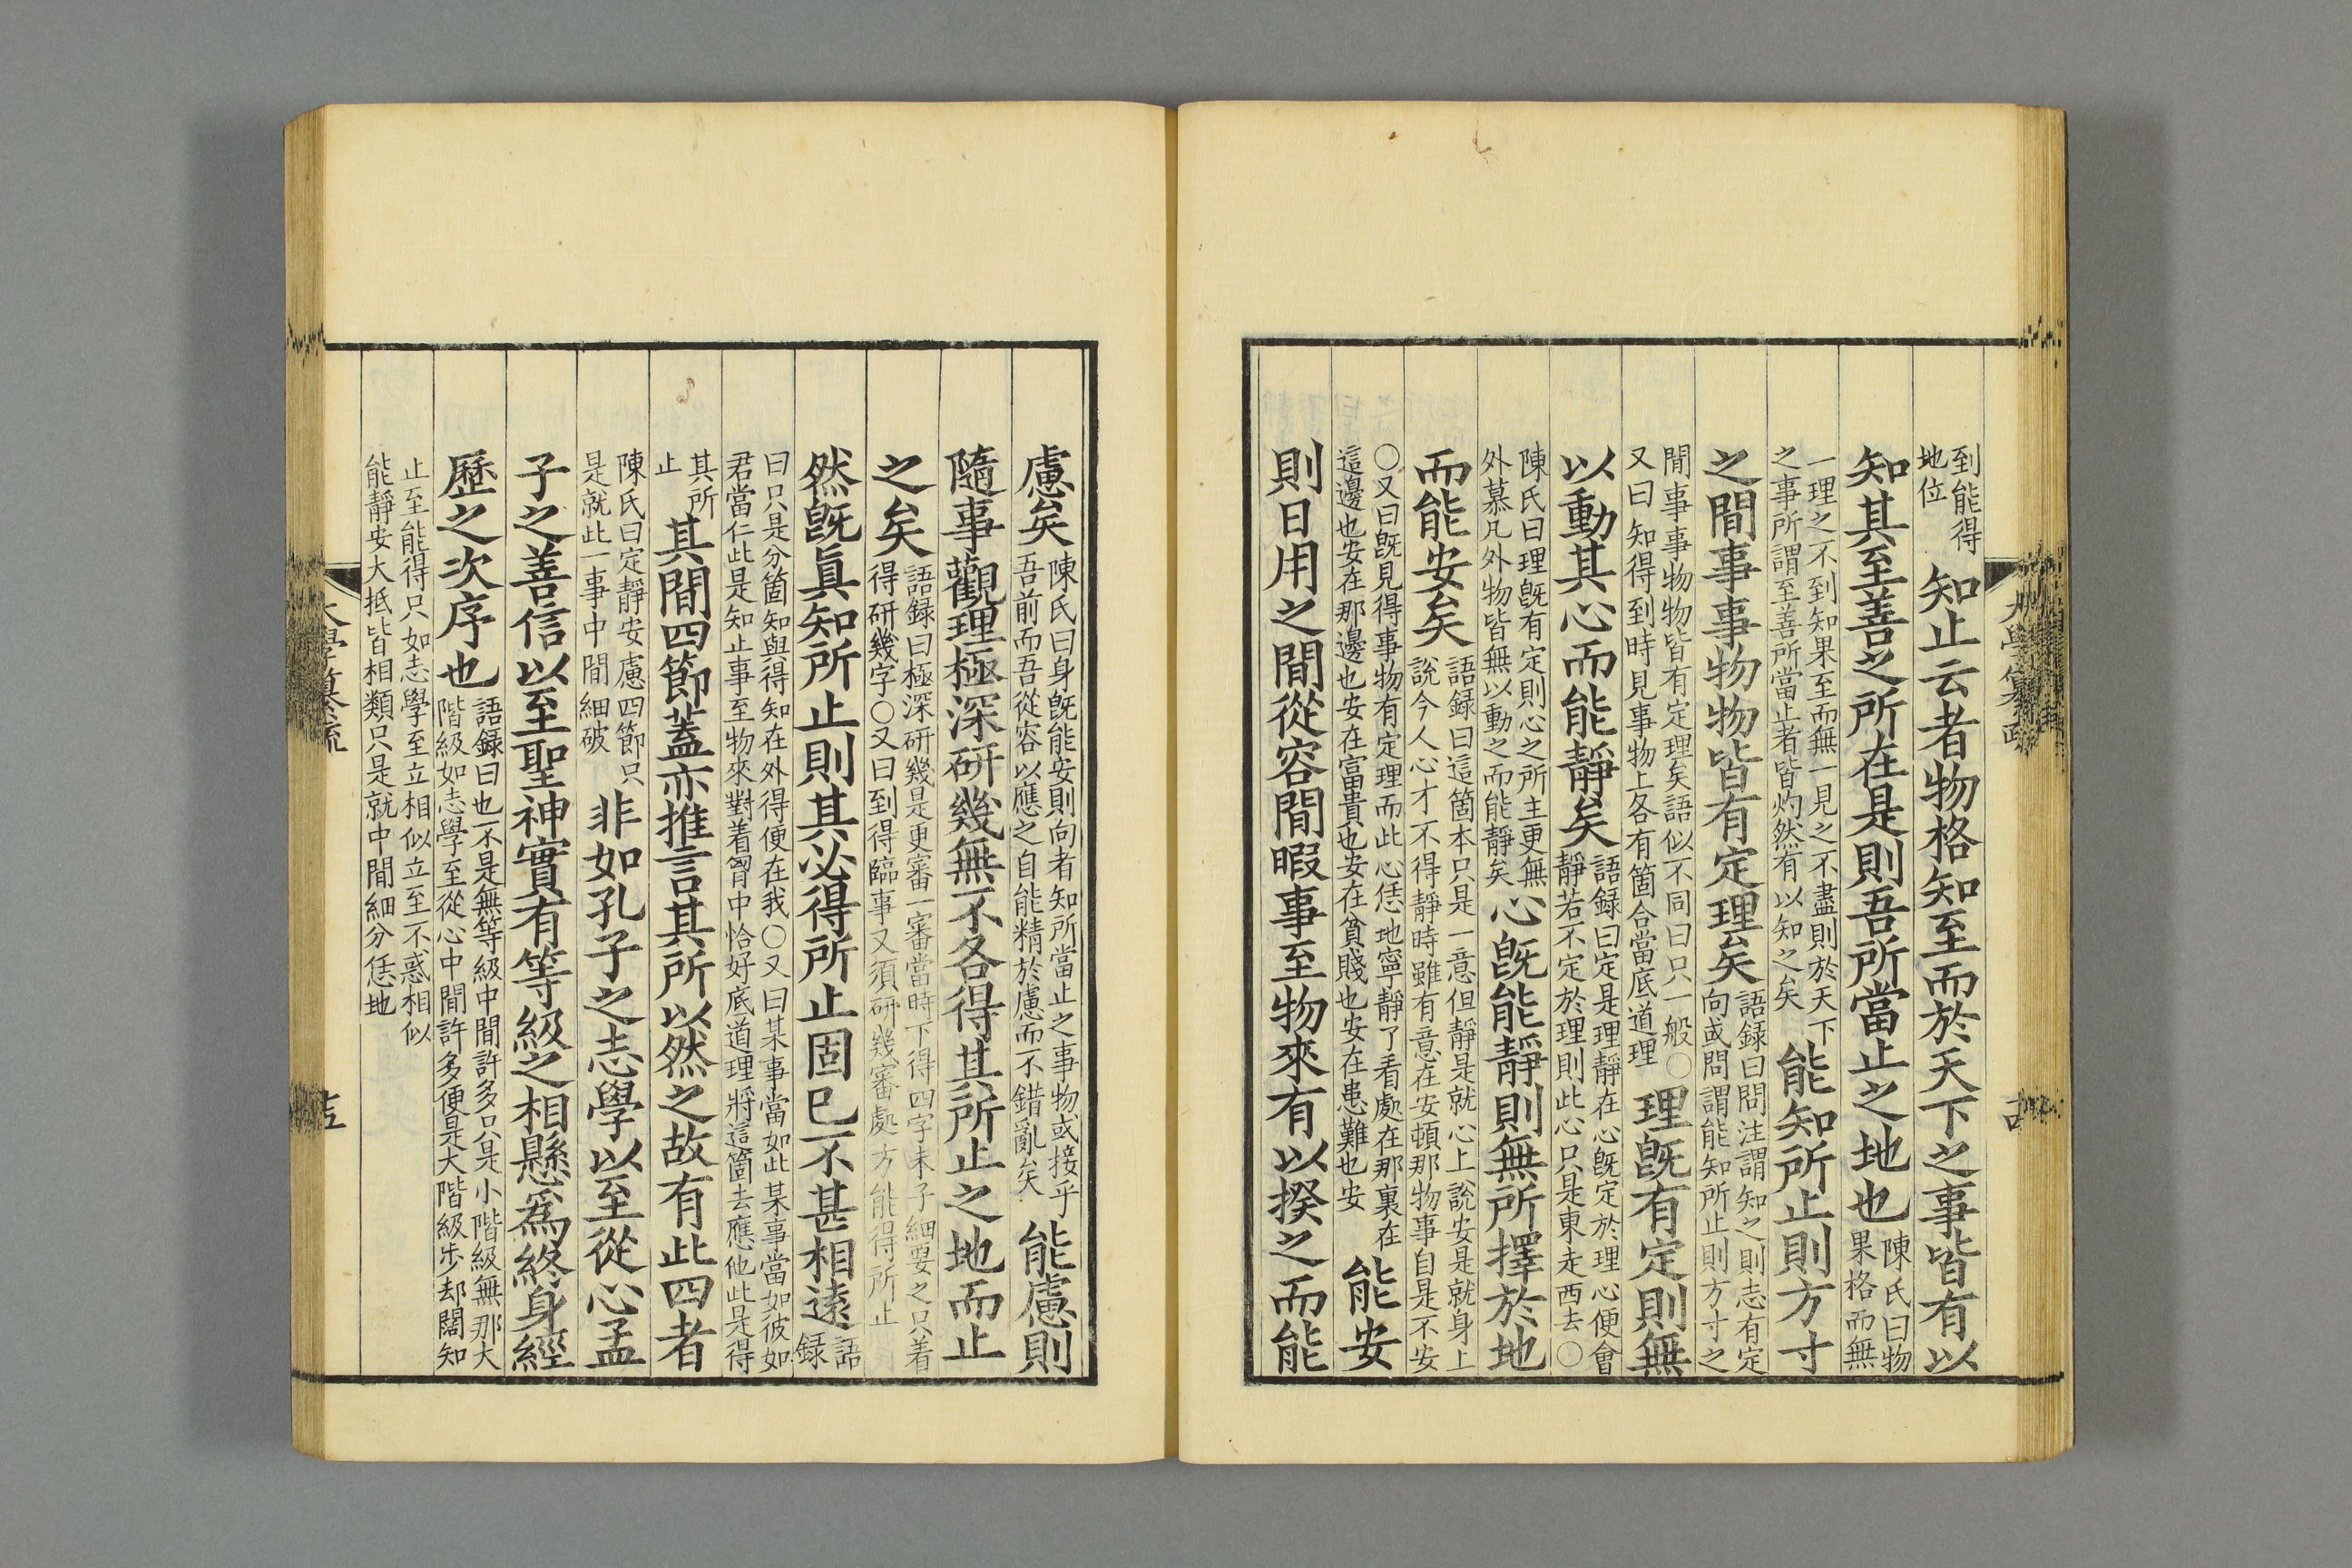 到能得
地位
知止云者物格知至而於天下之事皆有以
知其至善之所在是則吾所當止之地也
陳氏曰物
果格而無
一理之不到知果至而無一見之不盡則於天下
之事所謂至善所當止者皆灼然有以知之矣
能知所止則方寸
之間事事物物皆有定理矣
語録曰問注謂知之則志有定
向或問謂能知所止則方寸之
間事事物物皆有定理矣語似不同曰只一般〇
又曰知得到時見事物上各有箇合當底道理
理旣有定則無
以動其心而能靜矣
語録曰定是理靜在心旣定於理心便會
靜若不定於理則此心只是東走西去〇
陳氏曰理旣有定則心之所主更無
外慕凡外物皆無以動之而能靜矣
心旣能靜則無所擇於地
而能安矣
語録曰這箇本只是一意但靜是就心上說安是就身上
說今人心才不得靜時雖有意在安頓那物事自是不安
〇又曰旣見得事物有定理而此心恁地寧靜了看處在那裏在
這邊也安在那邊也安在富貴也安在貧賤也安在患難也安
能安
則日用之間從容閒暇事至物來有以揆之而能
慮矣
陳氏曰身旣能安則向者知所當止之事物或接乎
吾前而吾從容以應之自能精於慮而不錯亂矣
能慮則
隨事觀理極深研幾無不各得其所止之地而止
之矣
語録曰極深研幾是更審一審當時下得四字未子細要之只着
得研幾字〇又曰到得臨事又須研幾審處方能得所止
然旣眞知所止則其必得所止固已不甚相遠
語
録
曰只是分箇知與得知在外得便在我〇又曰某事當如此某事當如彼如
君當仁此是知止事至物來對着胷中恰好底道理將這箇去應他此是得
其所
止
其間四節蓋亦推言其所以然之故有此四者
陳氏曰定靜安慮四節只
是就此一事中間細破
非如孔子之志學以至從心孟
子之善信以至聖神實有等級之相懸爲終身經
歷之次序也
語録曰也不是無等級中間許多只是小階級無那大
階級如志學至從心中間許多便是大階級步却闊知
止至能得只如志學至立相似立至不惑相似
能靜安大抵皆相類只是就中間細分恁地
大學纂疏